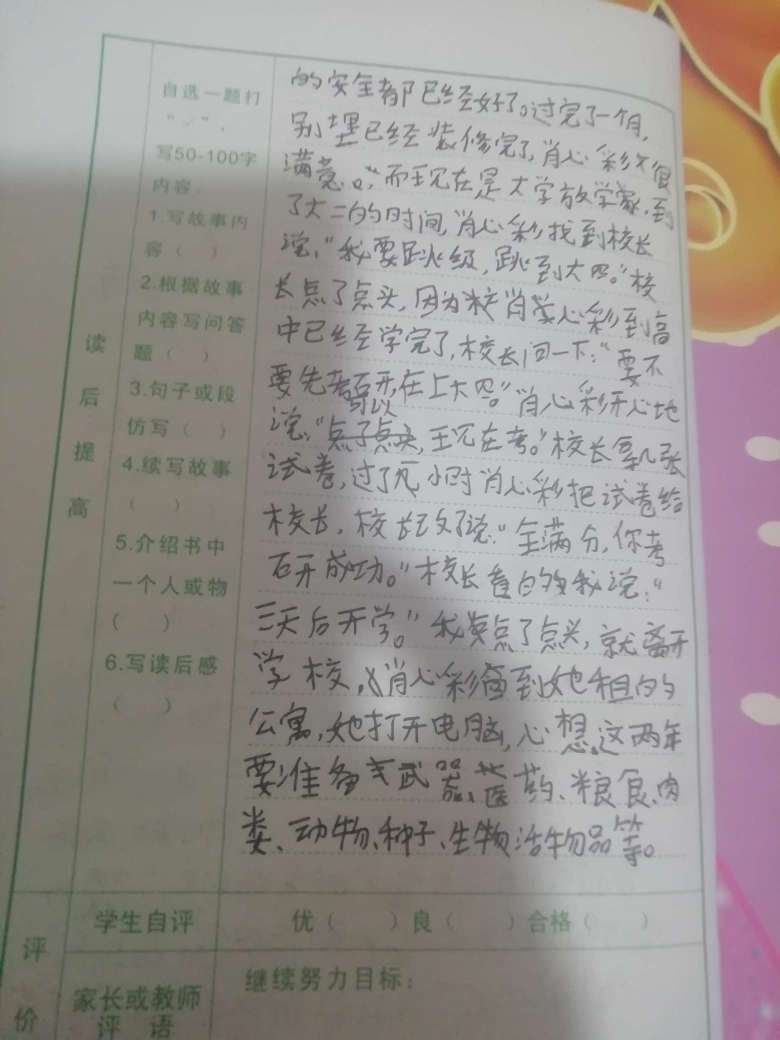 自选一题打
"✓",
写50-100字
内容。
1.写故事内
容（ ）
2.根据故事
内容写问答
题（ ）
3.句子或段
仿写（ ）
4.续写故事
（ ）
5.介绍书中
一个人或物
（ ）
6.写读后感
（ ）
读
后
提
高
的安全都已经好了。过完了一个月,
别墅已经装修完了,肖心彩很
满意。而现在是大学放学家,到
了大二的时间,肖心彩找到校长
说:"我要跳级,跳到大四。"校
长点了点头,因为肖心彩到高
中已经学完了,校长问一下:"要不
要先考研在上大四。"肖心彩开心地
说:"可以,现在考。"校长拿几张
试卷,过了几小时肖心彩把试卷给
校长,校长改了说:"全满分,你考
研成功。"校长看的我说:"
三天后开学。"我点了点头,就离开
学校,肖心彩回到她租的
公寓,她打开电脑,心想这两年
要准备武器、医药、粮食、肉
类、动物、种子、生物活物品等。
评
价
学生自评
优（ ）良（ ）合格（ ）
家长或教师
评 语
继续努力目标：